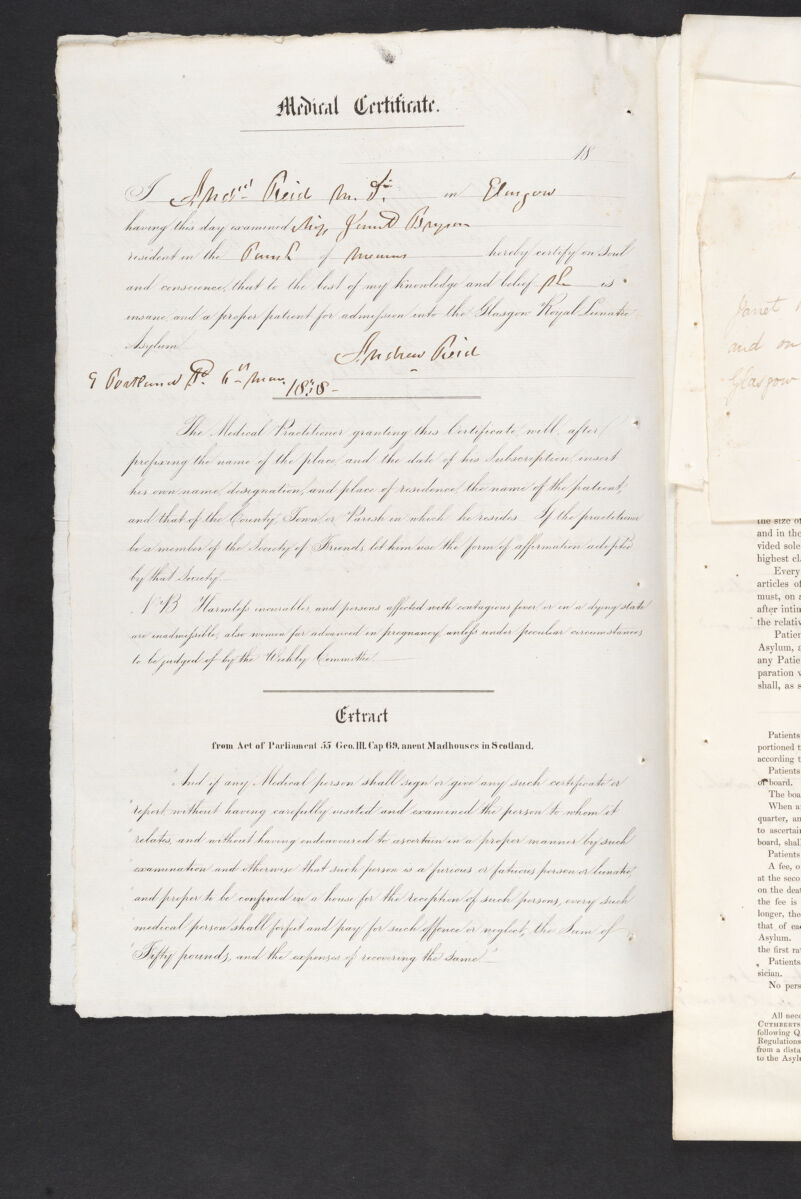 Medical Certificate.
18
I Andrd. Reid M.D. in Glasgow
having this day examined Miss Janet Bryson
resident in the Parish of Mearns hereby certify on soul
and conscience, that to the best of my knowledge and belief she is
insane, and a proper patient for admission into the Glasgow Royal Lunatic
Asylum.
Andrew Reid
9 Portland St. 6th May 1838
The Medical Practitioner granting this Certificate, will, after
prefixing the name of the place and the date of his Subscription, insert
his own name, designation, and place of residence, the name of the patient,
and that of the County, Town, or Parish in which he resides. If the practitioner
be a member of the Society of Friends, let him use the form of affirmation adopted
by that Society.
N.B. Harmless incurables, and persons affected with contagious fever or in a dying state
are inadmissible, also women far advanced in pregnancy, unless under peculiar circumstances,
to be judged of by the Weekly Committee.
Extract
from Act of Parliament 55 Geo. III. Cap 69, anent Madhouses in Scotland.
"And if any Medical person shall sign or give any such certificate or
"report, without having carefully visited and examined the person to whom it
"relates, and without having endeavoured to ascertain in a proper manner by such
"examination and otherwise that such person is a furious or fatuous person or lunatic,
"and proper to be confined in a house for the reception of such persons, every such
"medical person shall forfeit and pay for such offence or neglect, the Sum of
"Fifty pounds, and the expenses of recovering the same."
Janet
and on
Glasgow
the size of
and in the
vided sole
highest cl
Every
articles of
must, on a
after intin
the relativ
Patien
Asylum, a
any Patie
paration v
shall, as s
Patients
portioned t
according t
Patients
of board.
The boa
When a
quarter, an
to ascertain
board, shall
Patients
A fee, o
at the seco
on the deat
the fee is
longer, the
that of eac
Asylum.
the first ra
Patients
sician.
No pers
All nece
CUTHBERTS
following Q
Regulations
from a dista
to the Asylu